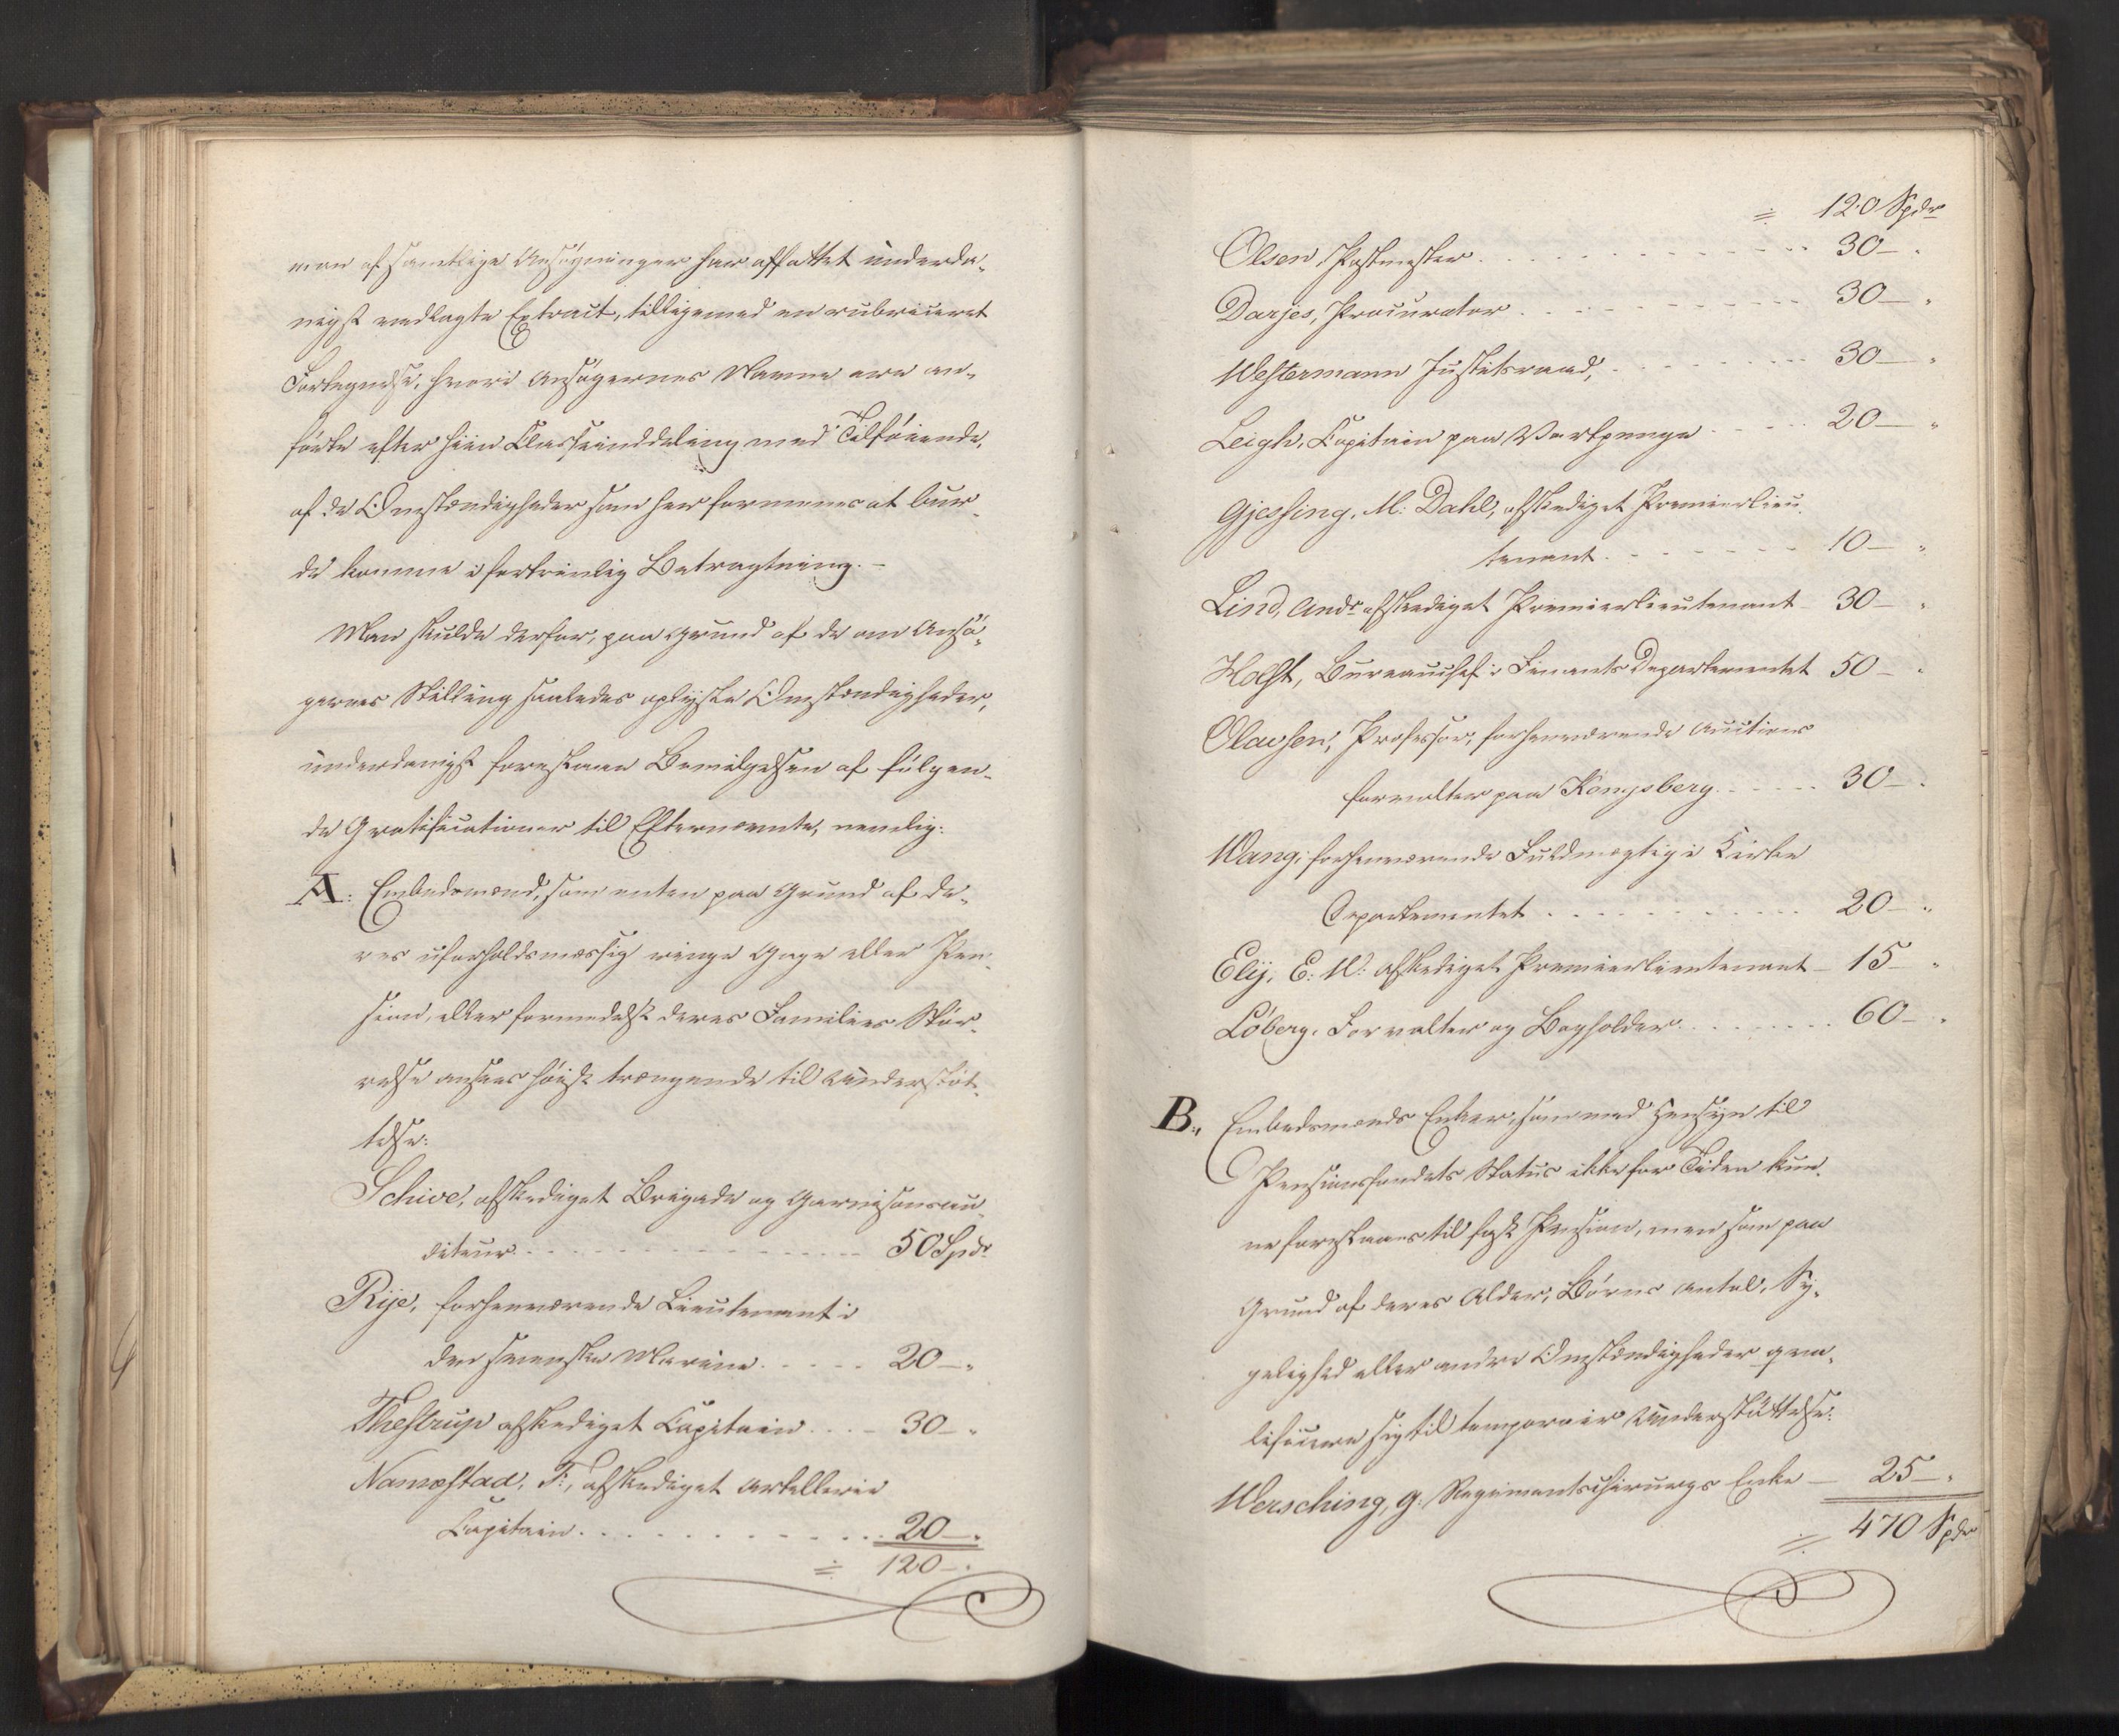 man af samtlige Ansøgninger har affattet underda-
nigst vedlagte Extract, tilligemed en rubriceret
Fortegnelse, hvori Ansøgernes Navne ere an-
førte efter hiin Classeinddeling med Tilføiende
af de Omstændigheder som her formenes at bur-
de komme i fortrinlig Betragtning.-
Man skulde derfor, paa Grund af de om Ansø-
gernes Stilling saaledes oplyste Omstændigheder,
underdanigst forestaae Bevilgelsen af følgen-
de Gratificationer til Efternævnte, nemlig:
A: Embedsmænd, som enten paa Grund af de-
res uforholdsmæssig ringe Gage eller Pen-
sion, eller formedelst deres Families Stør-
relse ansees høist trængende til Understøt-
telse:
Schive, afskediget Brigade og Garnisonsau-
diteur 50 Spdr
Rije, forhenværende Lieutenant i
den svenske Marine 20 -"
Thestrup afskediget Capitain 30 -"
Namestad, F:, afskediget Artillerie
Capitain 20 -"
= 120 -"
= 120 Spdr
Olsen, Postmester 30 - "
Darjes, Procurator 30 - "
Westermann Justitsraad, 30 - "
Leigh, Capitain paa Vartpenge 20 - "
Gjessing, M: Dahl, afskediget Premierlieu-
tenant 10 - "
Lind, Andr afskediget Premierlieutenant 30 - "
Holst, Bureauchef i Finants Departementet 50 - "
Olavsen, Professor, forhenværende Auctions
forvalter paa Kongsberg 30 - "
Wang, forhenværende Fuldmægtig i Kirke
Departementet 20 - "
Elij, E: W: afskediget Premierlieutenant - 15 "
Løberg, Forvalter og Bogholder 60 - "
B., Embedsmænds Enker, som med Hensyn til
Pensionsfondets Status ikke for Tiden kun-
ne forestaaes til fast Pension, men som paa
Grund af deres Alder, Børns Antal, Sy-
gelighed eller andre Omstændigheder qva-
lificere sig til temporair Understøttelse:
Wersching, G. Regimentschirurgs Enke - 25 - "
= 470 Spdr